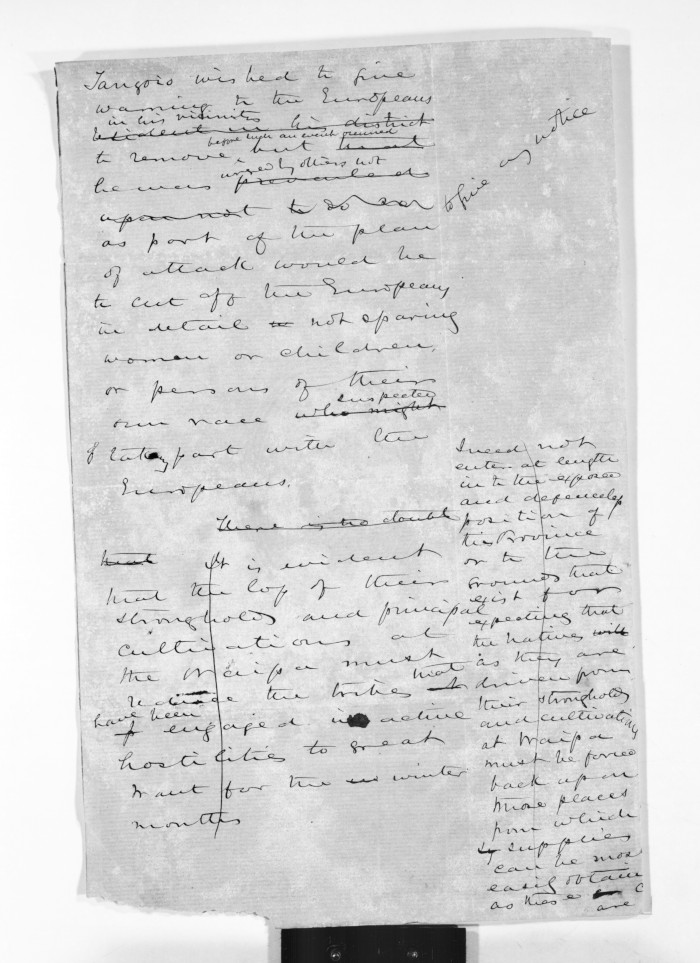 Tangoio wished to give
warning to the Europeans
in his vicinity
resident in his district
before such an event occurred
to remove, but
urged by others not
he was prevailed
upon not to do so
to give any notice
as part of the plan
of attack would be
to cut off the Europeans
in detail not sparing
women or children,
or persons of their
suspected
own race who might
of taking part with the
Europeans.
There is no doubt
that It is evident
that the loss of their
strongholds and principal
cultivations at
the Waipa must
reduce the tribes that
have been
engaged in active
hostilities to great
want for the winter
months
I need not
enter at length
into the exposed
and defenceless
position of
this Province
or to the
grounds that
exist for
expecting that
the natives will
as they are
driven from
their strongholds
and cultivations
at Waipa
must be forced
back upon
those places
from which
supplies
can be most
easily obtain
as these
are